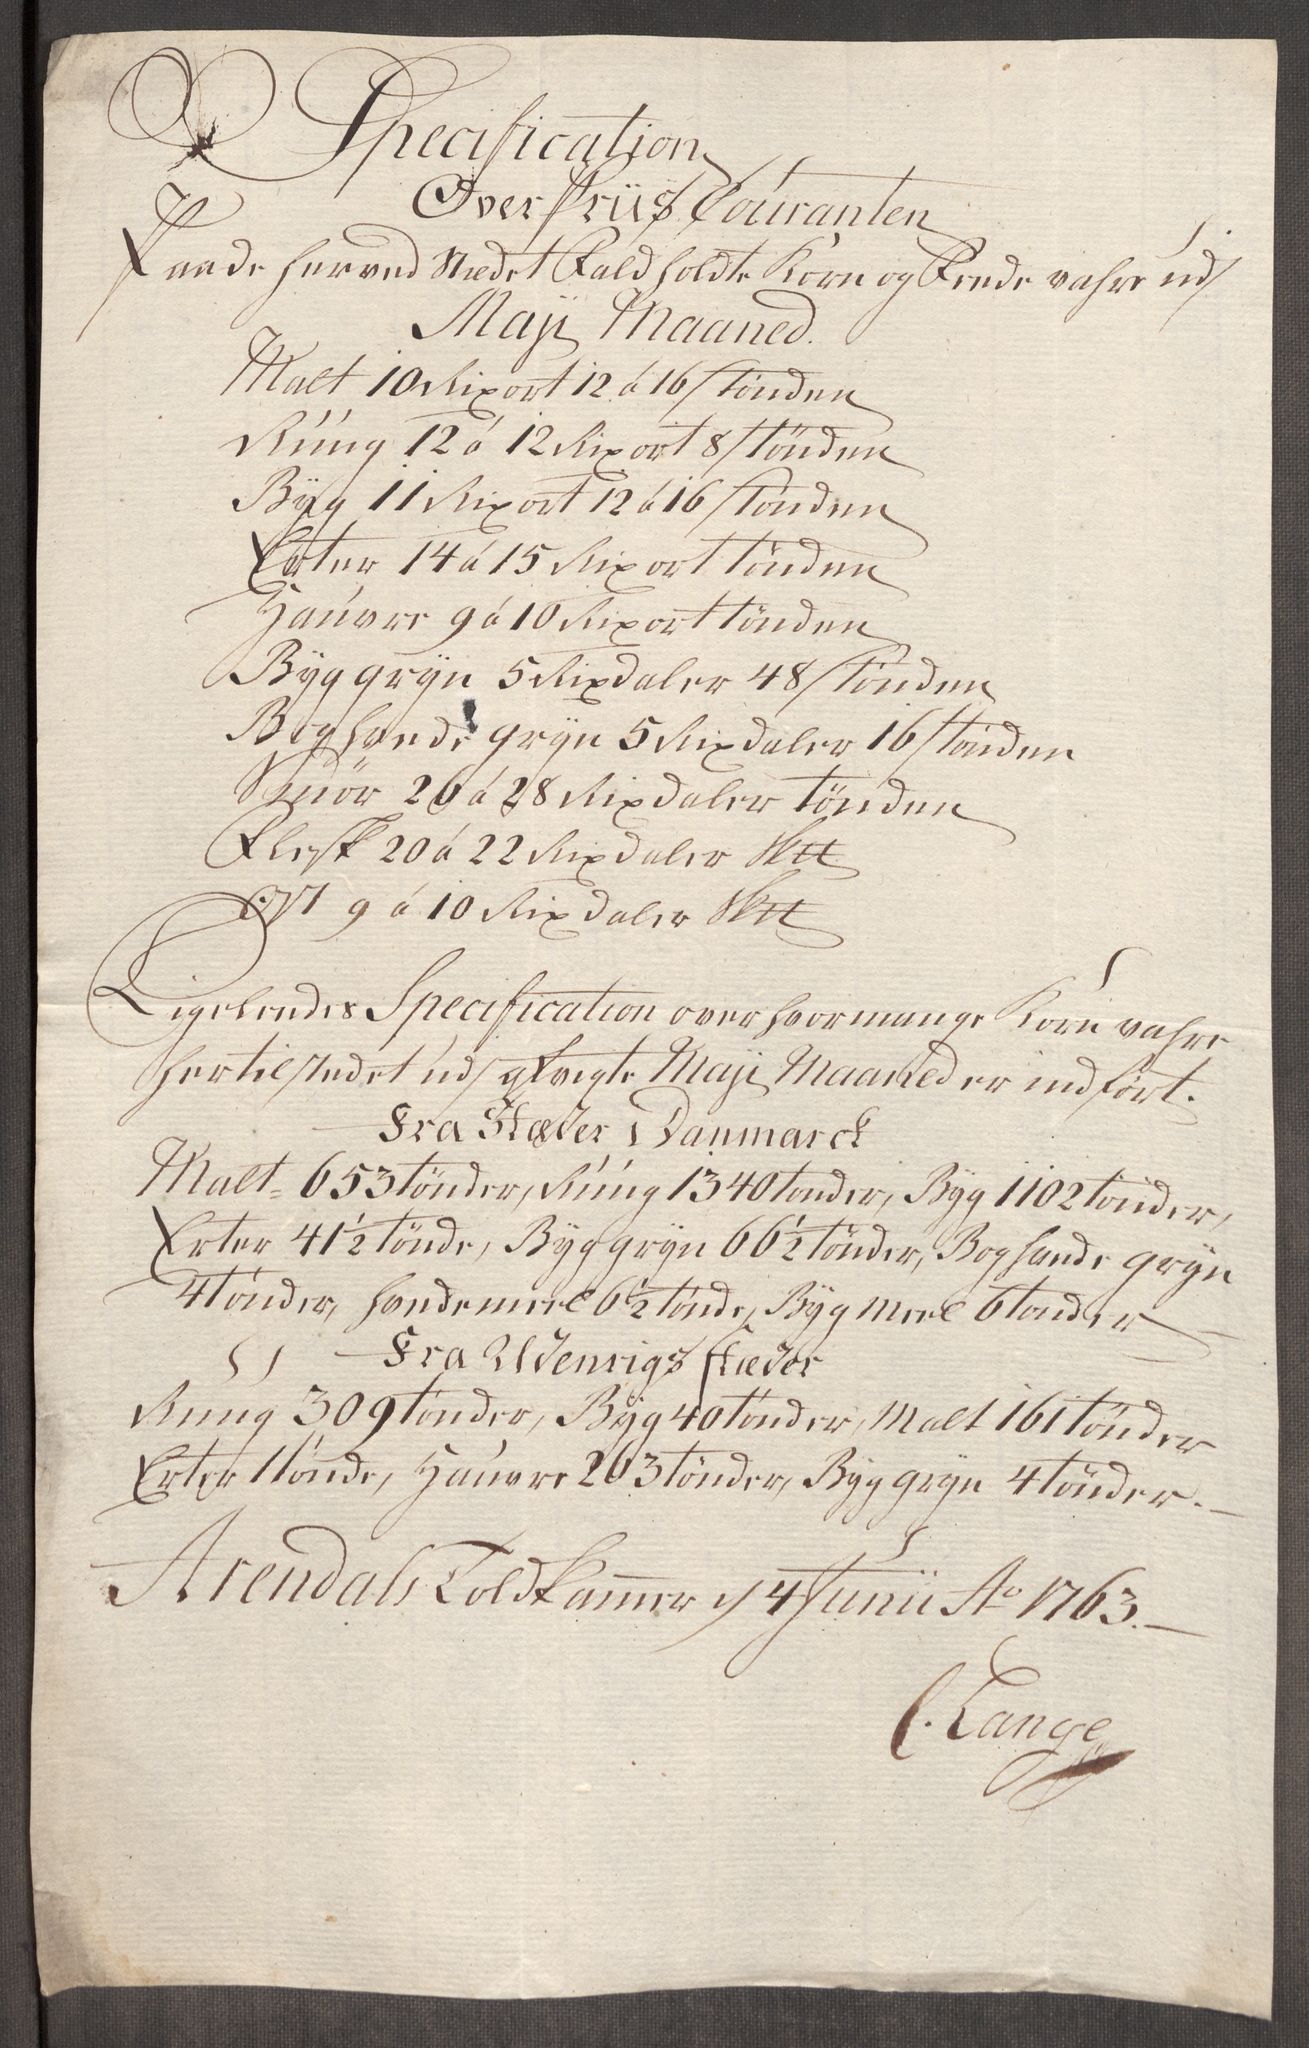 Specification
Over Priis Couranten
Paa de herved Stædet Fald holdte Korn og Fede vahre udj
Maji Maaned.
Malt 10 Rixort 12 á 16 s tönden
Rúúg 12 á 12 Rixort 8 s tönden
Byg 11 Rixort 12 á 16 s tönden
Erter 14 á 15 Rixort tönden
Haúvre 9 á 10 Rixort tönden
Byg gryn 5 Rixdaler 48 s tönden
Boghvede gryn 5 Rixdaler 16 s tönden
Smör 26 á 28 Rixdaler tönden
Flesk 20 á 22 Rixdaler Sktt
Ost 9 á 10 Rixdaler Sktt
Ligeleedes Specification over hvormange Korn vahre
hertil stedet udj Maji Maaned er indfört.
Fra Stæder i Danmarck
Malt 653 tönder, Rúúg 1340 tönder, Byg 1102 tönder,
Erter 41½ tönde, Byg gryn 66½ tönder, Boghvede gryn
4 tönder, hvedemeel 6½ tönde, Byg meel 6 tönder
Fra Udenrigs stæder
Rúúg 309 tönder, Byg 40 tönder, Malt 161 tönder
Erter 1 tönde, Haúvre 203 tönder, Byg gryn 4 tönder.
Arendals Toldkammer d 4 Junii Ao 1763.
C. Lange